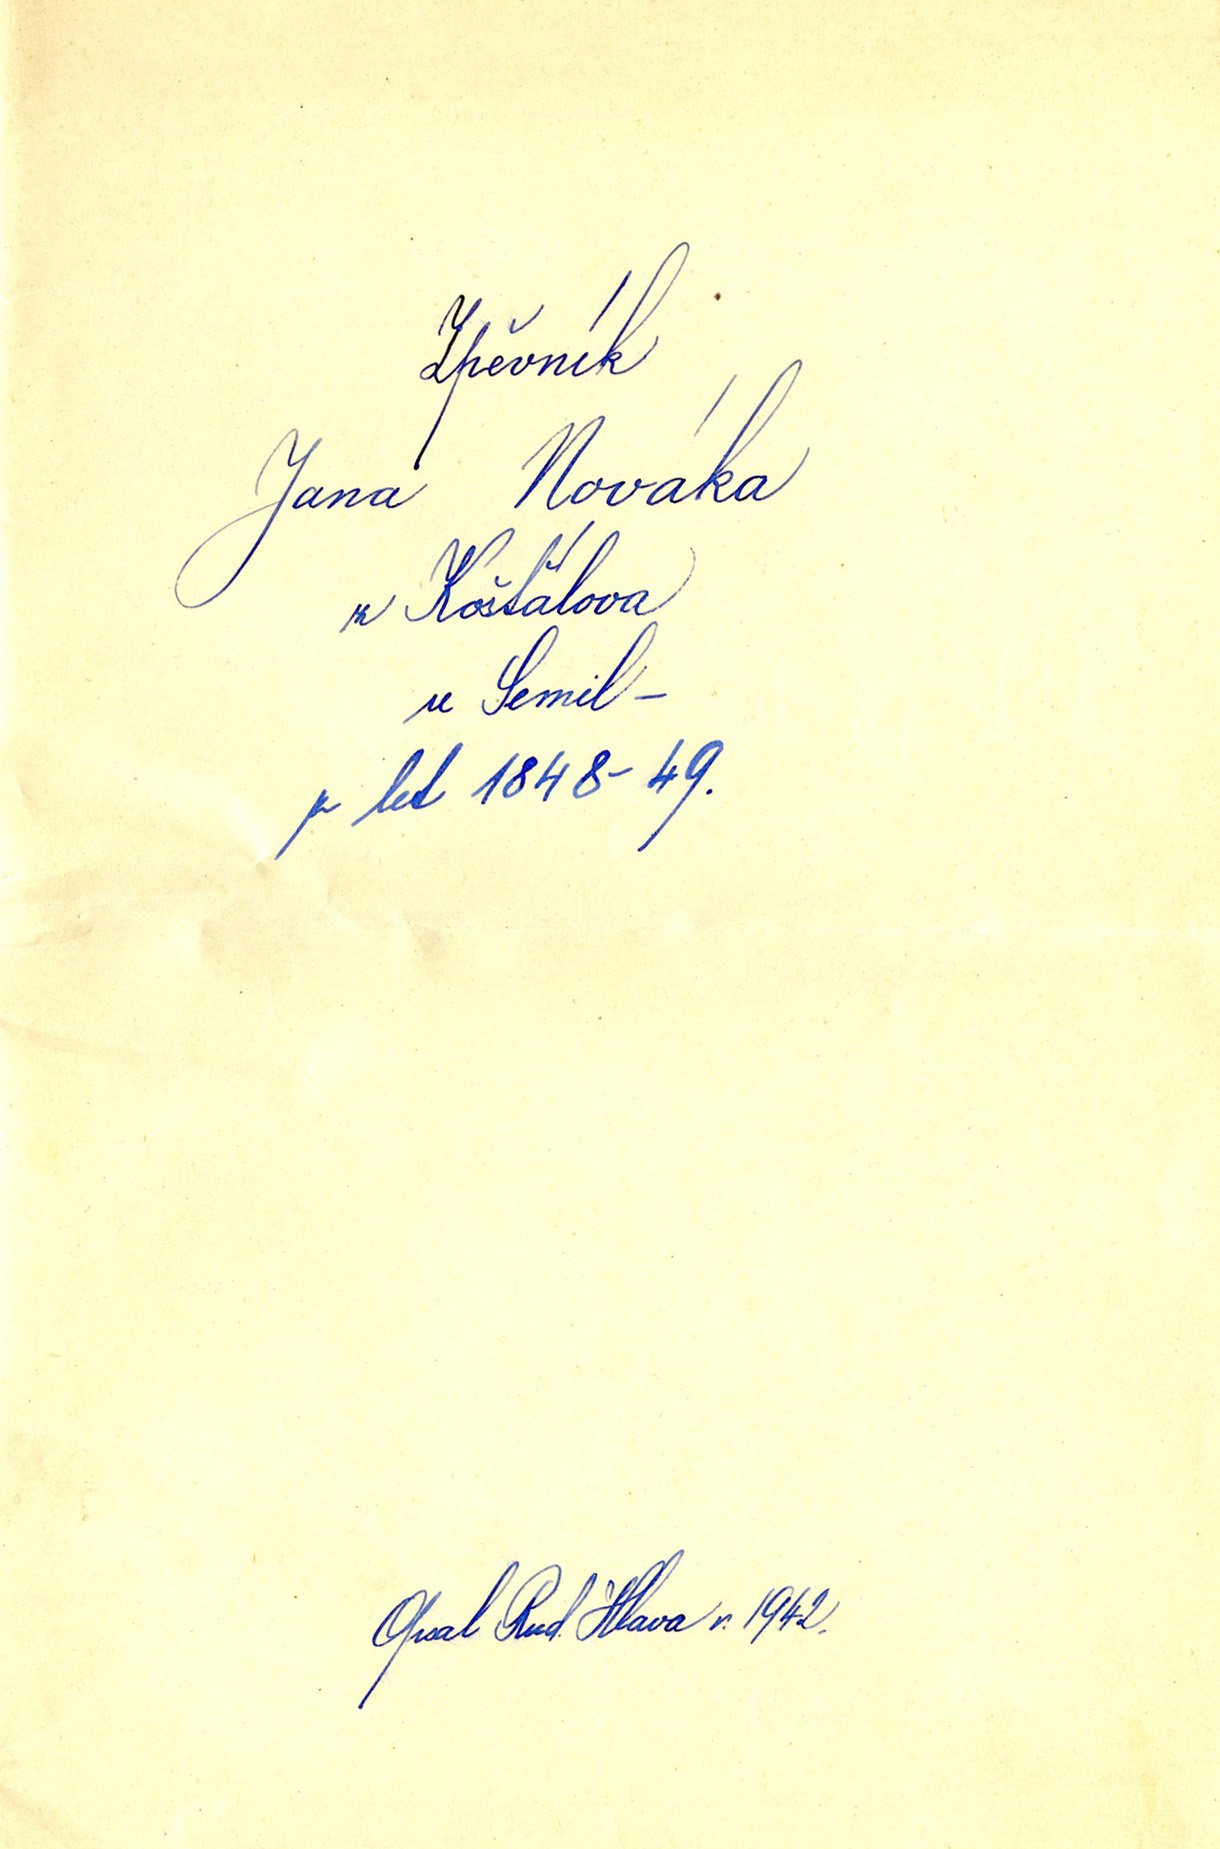 Zpěvník
Jana Nováka
z Košťálova
u Semil –
z let 1848–49.
Opsal Rud. Hlava r. 1942.